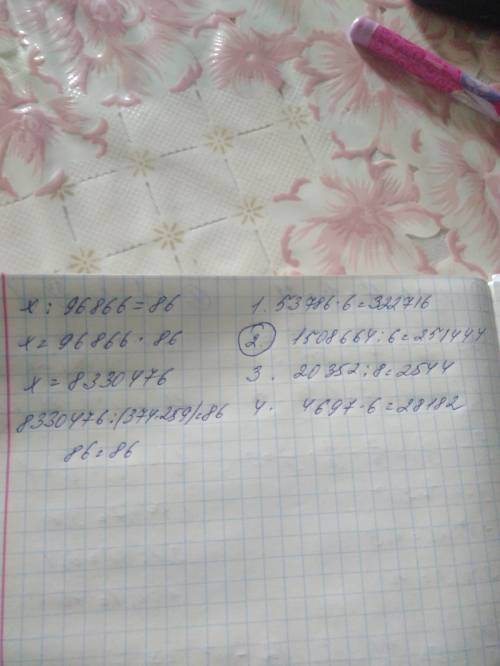 x : 96866 = 86
x = 96866 · 86
x = 8330476
8330476 : (374·259) = 86
86 = 86
1. 53786·6=322716
2. 1508664:6=251444
3. 20352:8=2544
4. 4697·6=28182